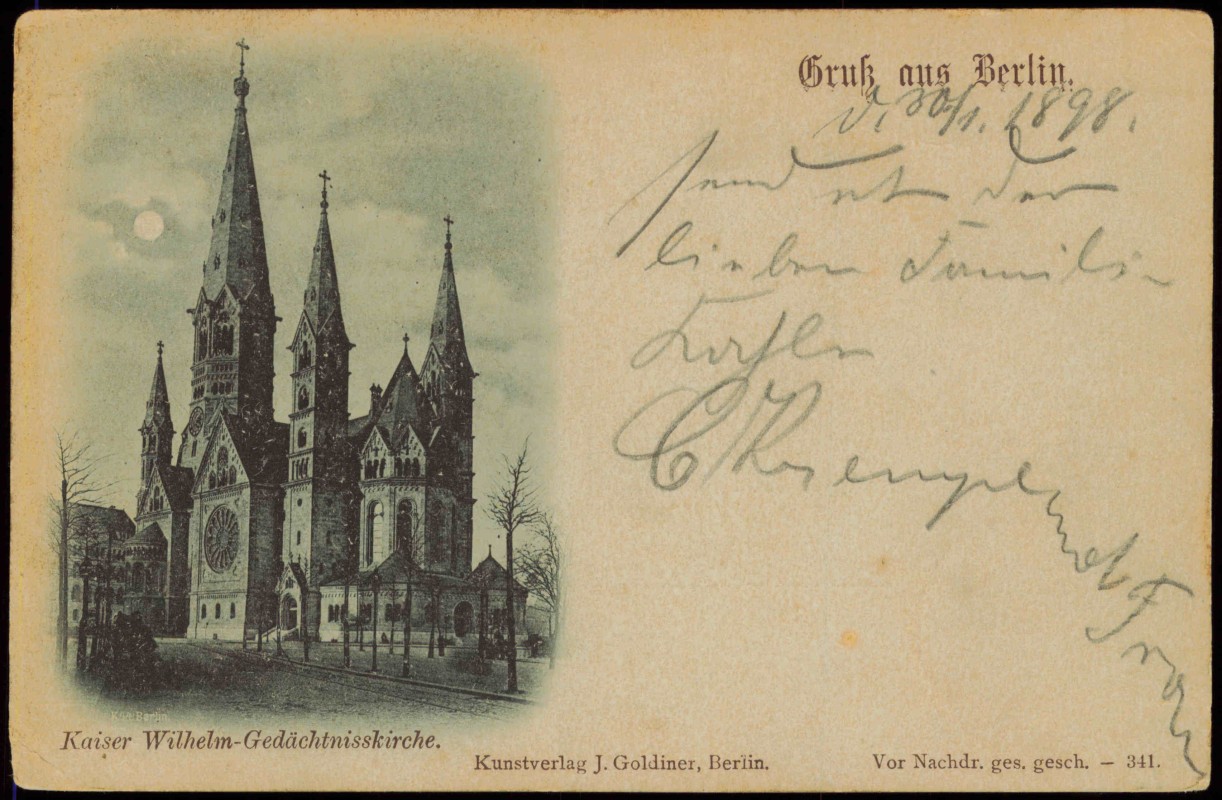 Gruß aus Berlin.
d. 30/1. 1898.
sendet der
lieben Familie
nebst Frau
Kaiser Wilhelm-Gedächtnisskirche.
Kunstverlag J. Goldiner, Berlin.
Vor Nachdr. ges. gesch. — 341.